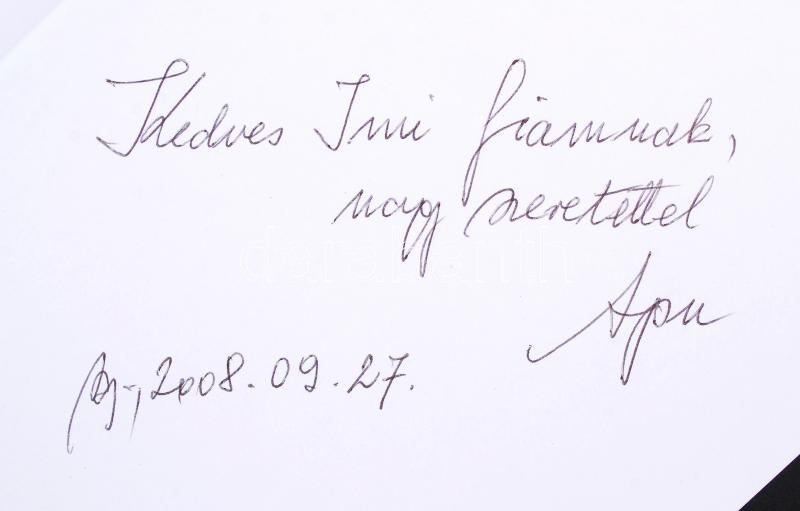 Kedves Imi fiamnak,
nagy szeretettel
Apu
Bp., 2008.09.27.